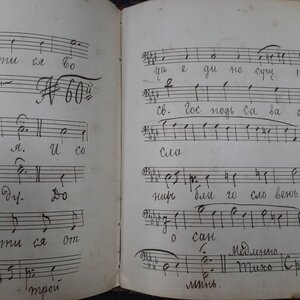 ти ся Бо
№ 60й
А. И со
ду. До
ти ся от
трой
це е ди но сущ н
св. Гос подь са ва о
сла
нъ бла го сло венъ
о сан
минь.
Медленно
Тихо Ср